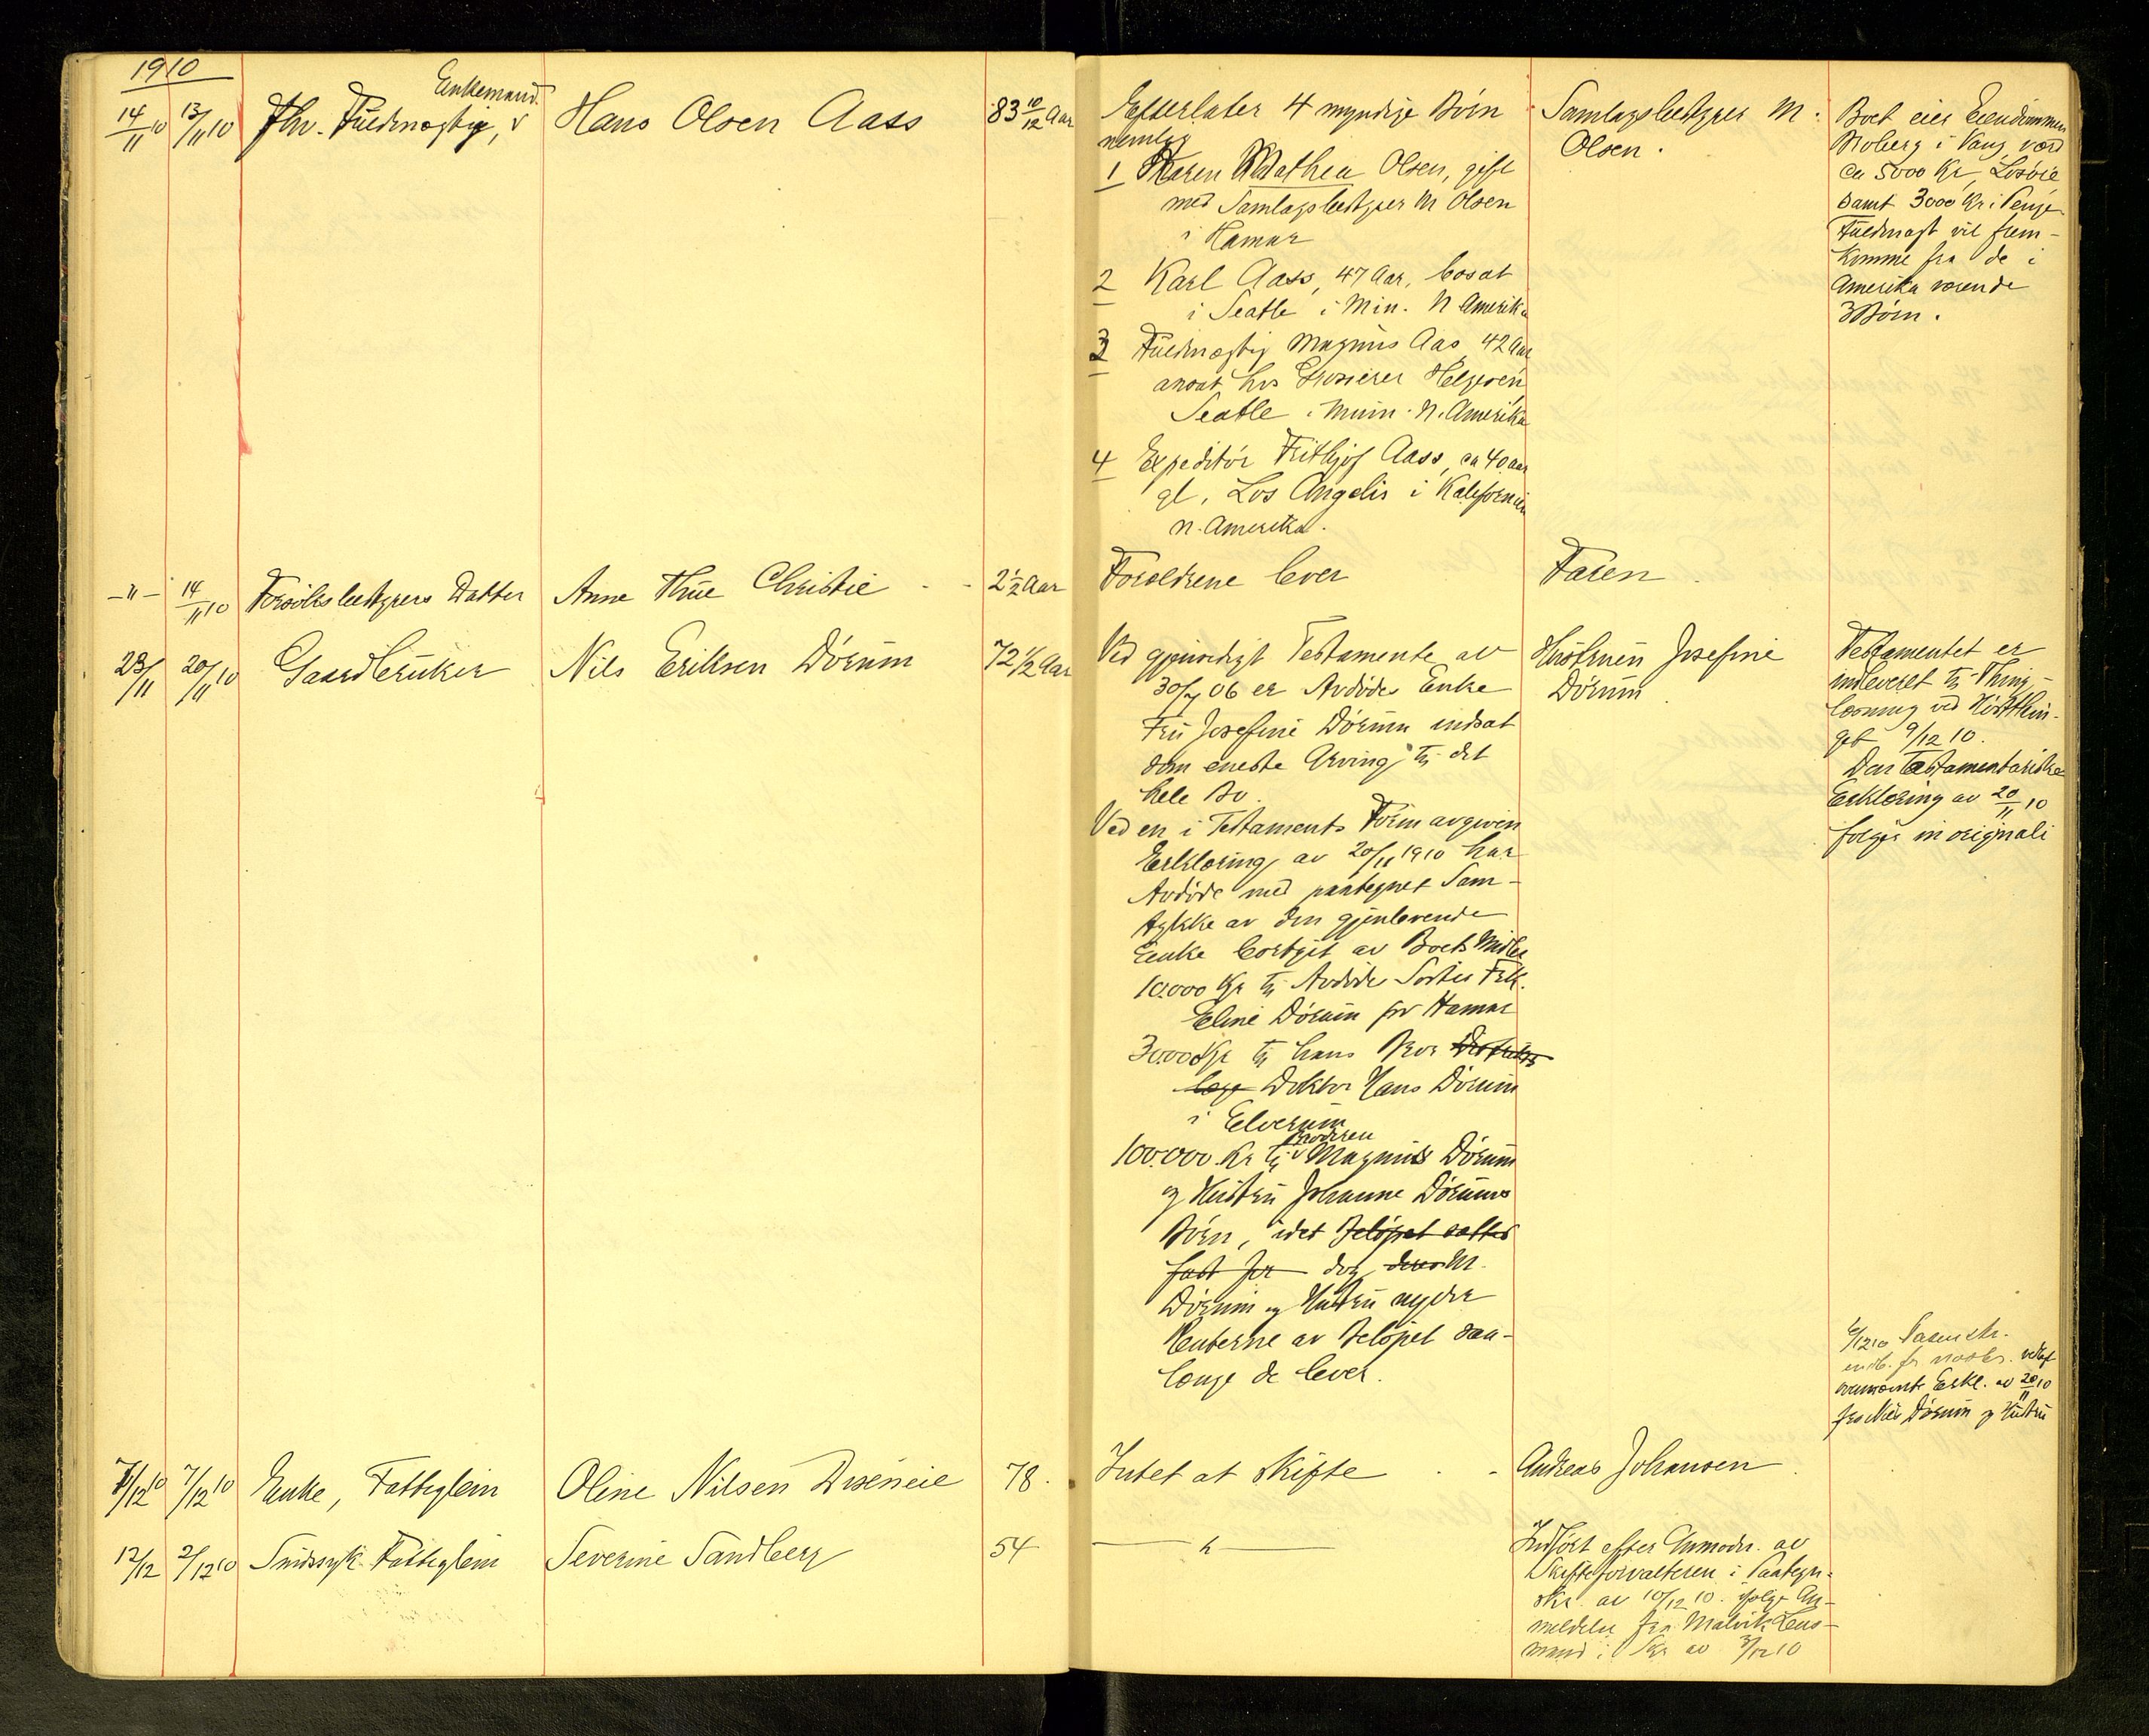 1910
Enkemand.
14/11 10 13/11 10 fhv. Fuldmægtig, v Hans Olsen Aass 83 10/12 Aar
Efterlater 4 myndige Börn
nemlig
1 Karen Mathea Olsen, gift
med Samlagsbestyrer M Olsen
i Hamar
2 Karl Aass, 47 Aar, bosat
i Seatle i Min. N Amerika
3 Fuldmægtig Magnus Aas, 42 Aar
ansat hos Grosserer Helgesen
Seatle i Minn. N. Amerika
4 Expeditör Frithjof Aass, ca 40 aar
gl. Los Angelis i Kalifornien
N. Amerika.
Samlagsbestyrer M.
Olsen.
Boet eier Eiendommen
Moberg i Vang værd
ca 5000 Kr, Lösöre
samt 3000 Kr i Penge
Fuldmagt vil frem-
komme fra de i
Amerika værende
3 Börn.
-"- 14/11 10 Forsöksbestyrers Datter Anne Thue Christie - - 2 1/2 Aar
Forældrene lever
Faren
23/11 20/11 10 Gaardbruker Nils Eriksen Dörum 72 1/2 Aar
Ved gjensidigt Testamente av
30/7 06 er Avdödes Enke
Fru Josefine Dörum indsat
som eneste Arving til det
hele Bo.
Ved en i Testaments Form avgiven
Erklæring av 20/11 1910 har
Avdöde med paategnet Sam-
tykke av den gjenlevende
Enke bortgit av Boets Midler
10.000 Kr til Avdödes Söster Frk.
Eline Dörum pr Hamar
30.000 Kr til hans Bror Distrikts
læge Doktor Hans Dörum
i Elverum
Broderen
100.000 Kr til v Magnus Dörum
og Hustru Johanne Dörums
Börn, idet Belöpet sættes
fast for dog deres M.
Dörum og Hustru nyder
Renterne av Belöpet saa-
længe de lever.
Husfruen Josefine
Dörum
Testamentet er
indleveret til Thing-
læsning ved Höstthin-
get 9/12 10.
Den Testamentariske
Erklæring av 20/11 10
fölger in originali
6/12 10
ovennævnte Erkl. av 20/11 10
fra Nils Dörum og Hustru
7/12 10 7/12 10 Enke, Fattiglem Oline Nilsen 78.
Intet at skifte - -
Andreas Johansen
12/12 2/12 10 Sindssyk Fattiglem Severine Sandberg 54
— " —
Indfört efter Anmodn. av
Skifteforvalteren i Paategn.
skr. av 10/12 10. ifölge An-
meldelse fra Malvik Lens-
mand i Skr. av 3/12 10